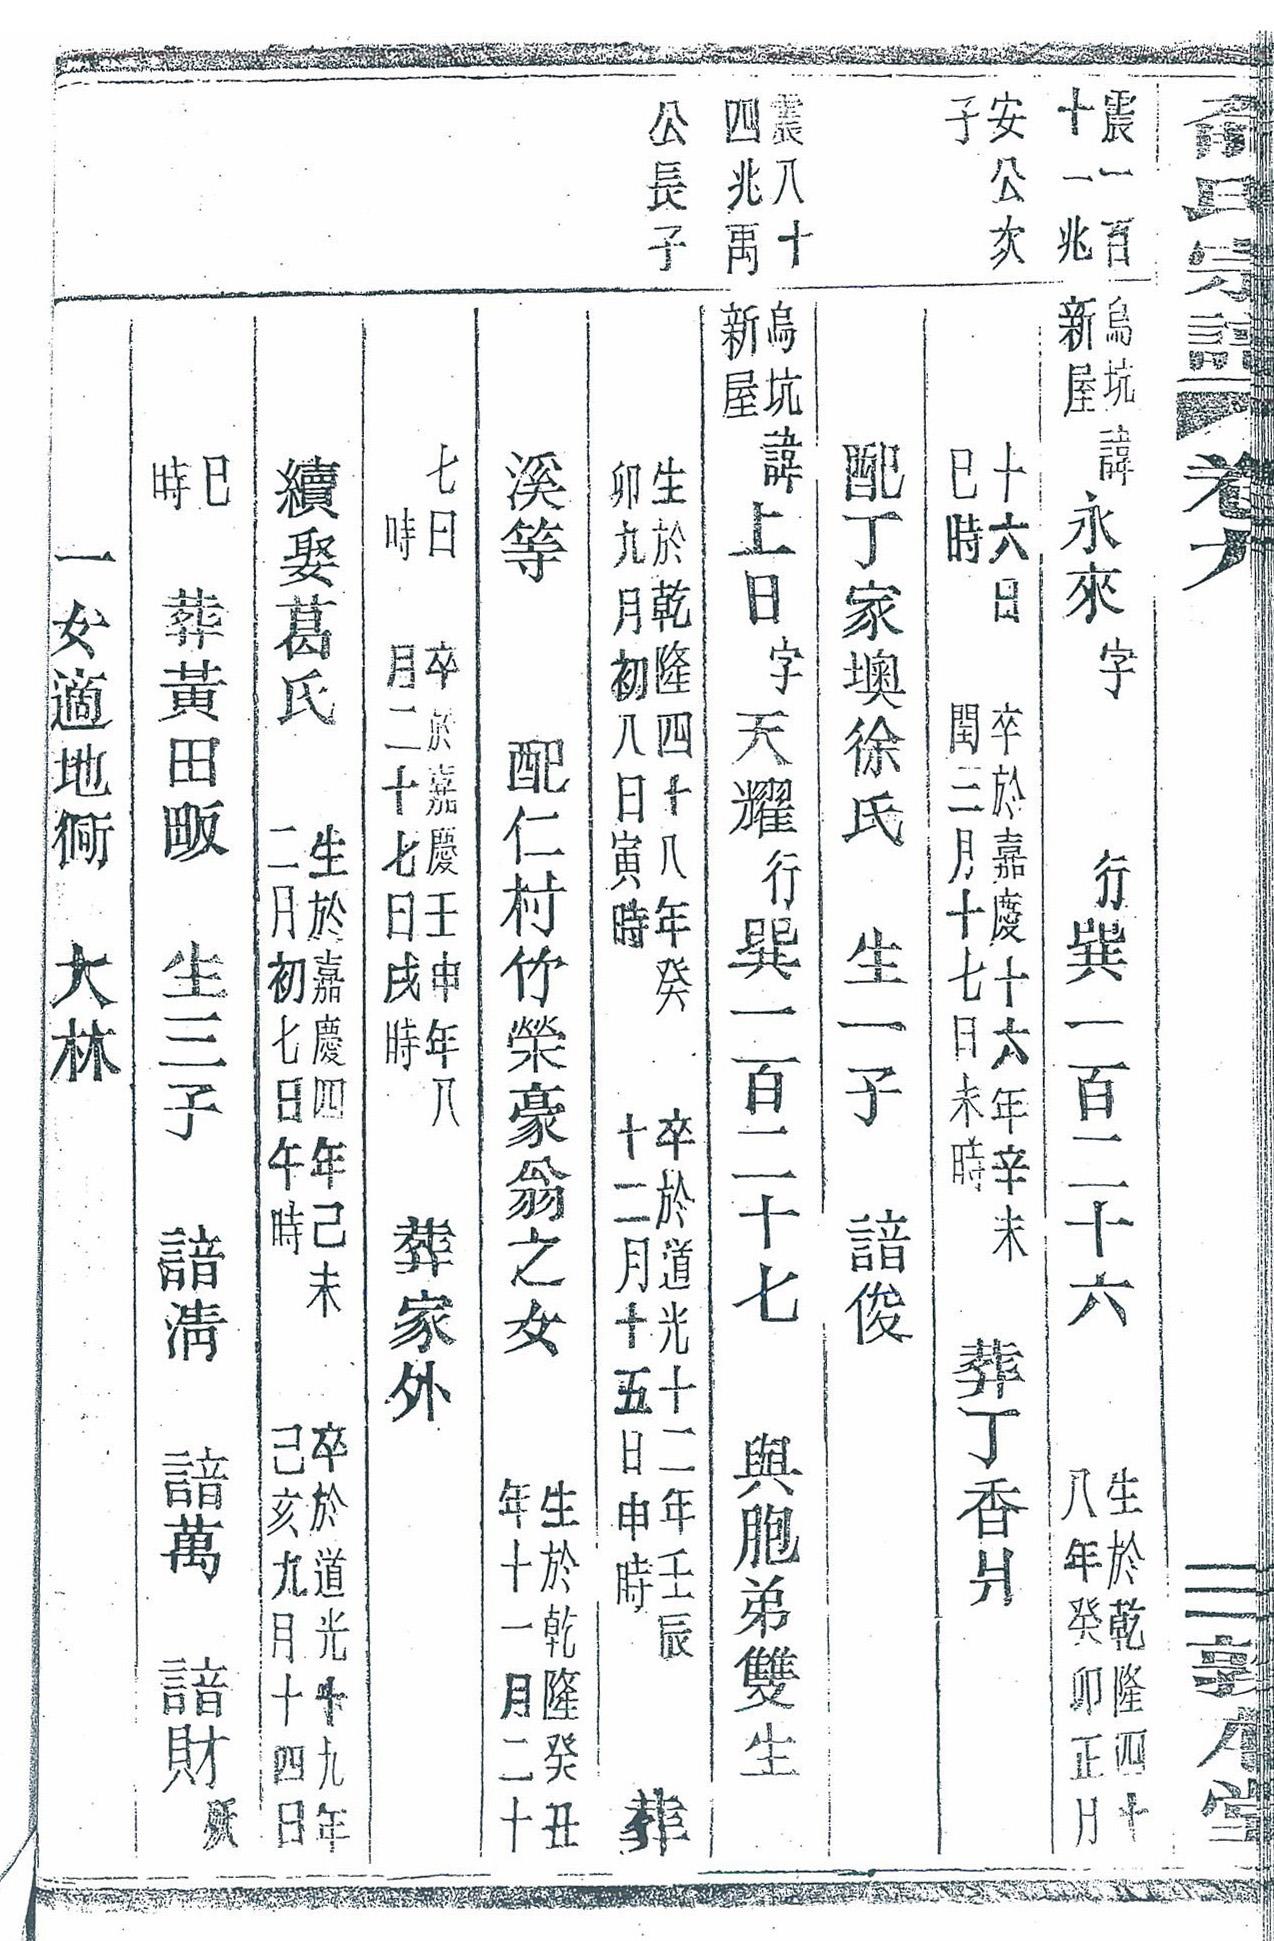 俞氏宗譜 卷九 三 敦本堂
震一百
十一兆
安公次
子
烏坑
新屋
諱永來 字 行巽一百二十六 生於乾隆四十
八年癸卯正月
十六日
巳時
卒於嘉慶十六年辛未
閏三月十七日未時
葬丁香爿
配丁家墺徐氏 生一子 諳俊
震八十
四兆禹
公長子
烏坑
新屋
諱上日 字天耀 行巽一百二十七 與胞弟雙生
生於乾隆四十八年癸
卯九月初八日寅時
卒於道光十二年壬辰
十二月十五日申時
葬
溪等 配仁村竹榮豪翁之女 生於乾隆癸丑
年十一月二十
七日
時
卒於嘉慶壬申年八
月二十七日戌時
葬家外
續娶葛氏 生於嘉慶四年己未
二月初七日午時
卒於道光十九年
己亥九月十四日
巳
時
葬黃田畈 生三子 諳淸 諳萬 諳財
一女適地衕 大林